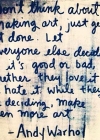 Don't think about
making art, just get
it done. Let
everyone else decide
if it's good or bad,
whether they love it
or hate it. while they
are deciding, make
even more art
Andy Warhol